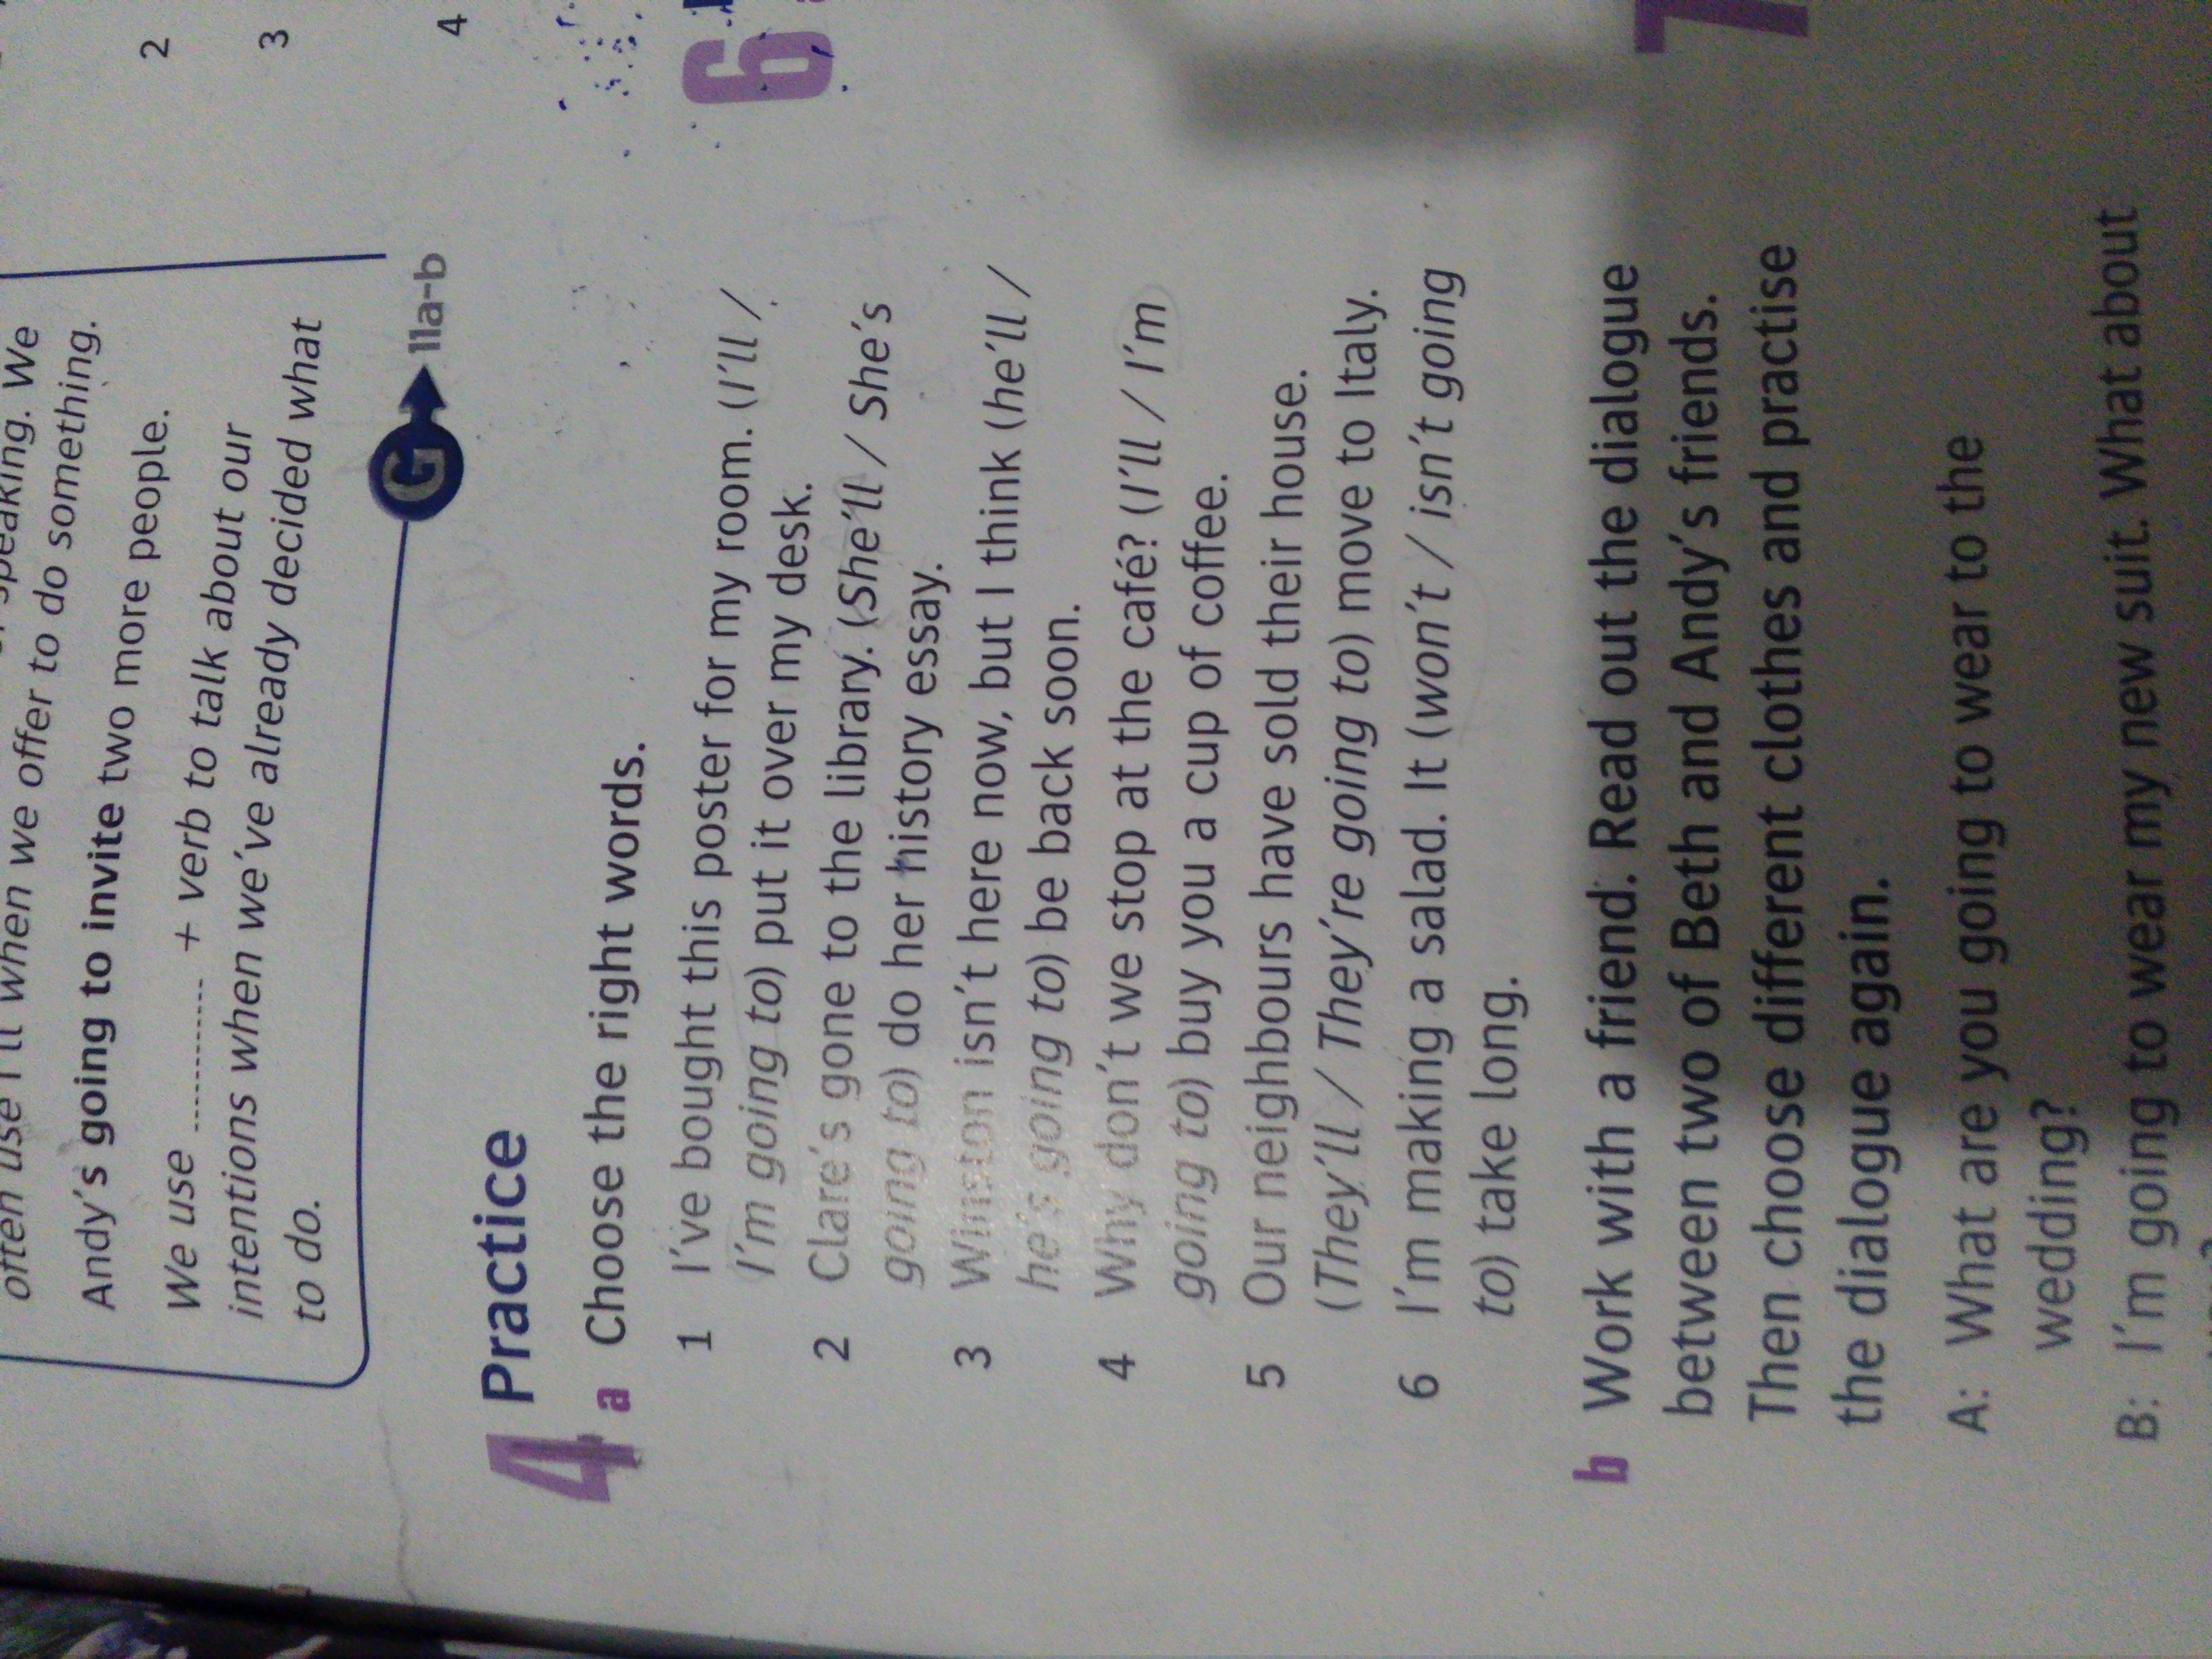 often use I'll when we offer to do something.
Andy's going to invite two more people.
We use ............ + verb to talk about our
intentions when we've already decided what
to do.
G 11a-b
4 Practice
a Choose the right words.
1 I've bought this poster for my room. (I'll /
I'm going to) put it over my desk.
2 Clare's gone to the library. (She'll / She's
going to) do her history essay.
3 Winston isn't here now, but I think (he'll /
he's going to) be back soon.
4 Why don't we stop at the café? (I'll / I'm
going to) buy you a cup of coffee.
5 Our neighbours have sold their house.
(They'll / They're going to) move to Italy.
6 I'm making a salad. It (won't / isn't going
to) take long.
b Work with a friend. Read out the dialogue
between two of Beth and Andy's friends.
Then choose different clothes and practise
the dialogue again.
A: What are you going to wear to the
wedding?
B: I'm going to wear my new suit. What about
2
3
4
6
7